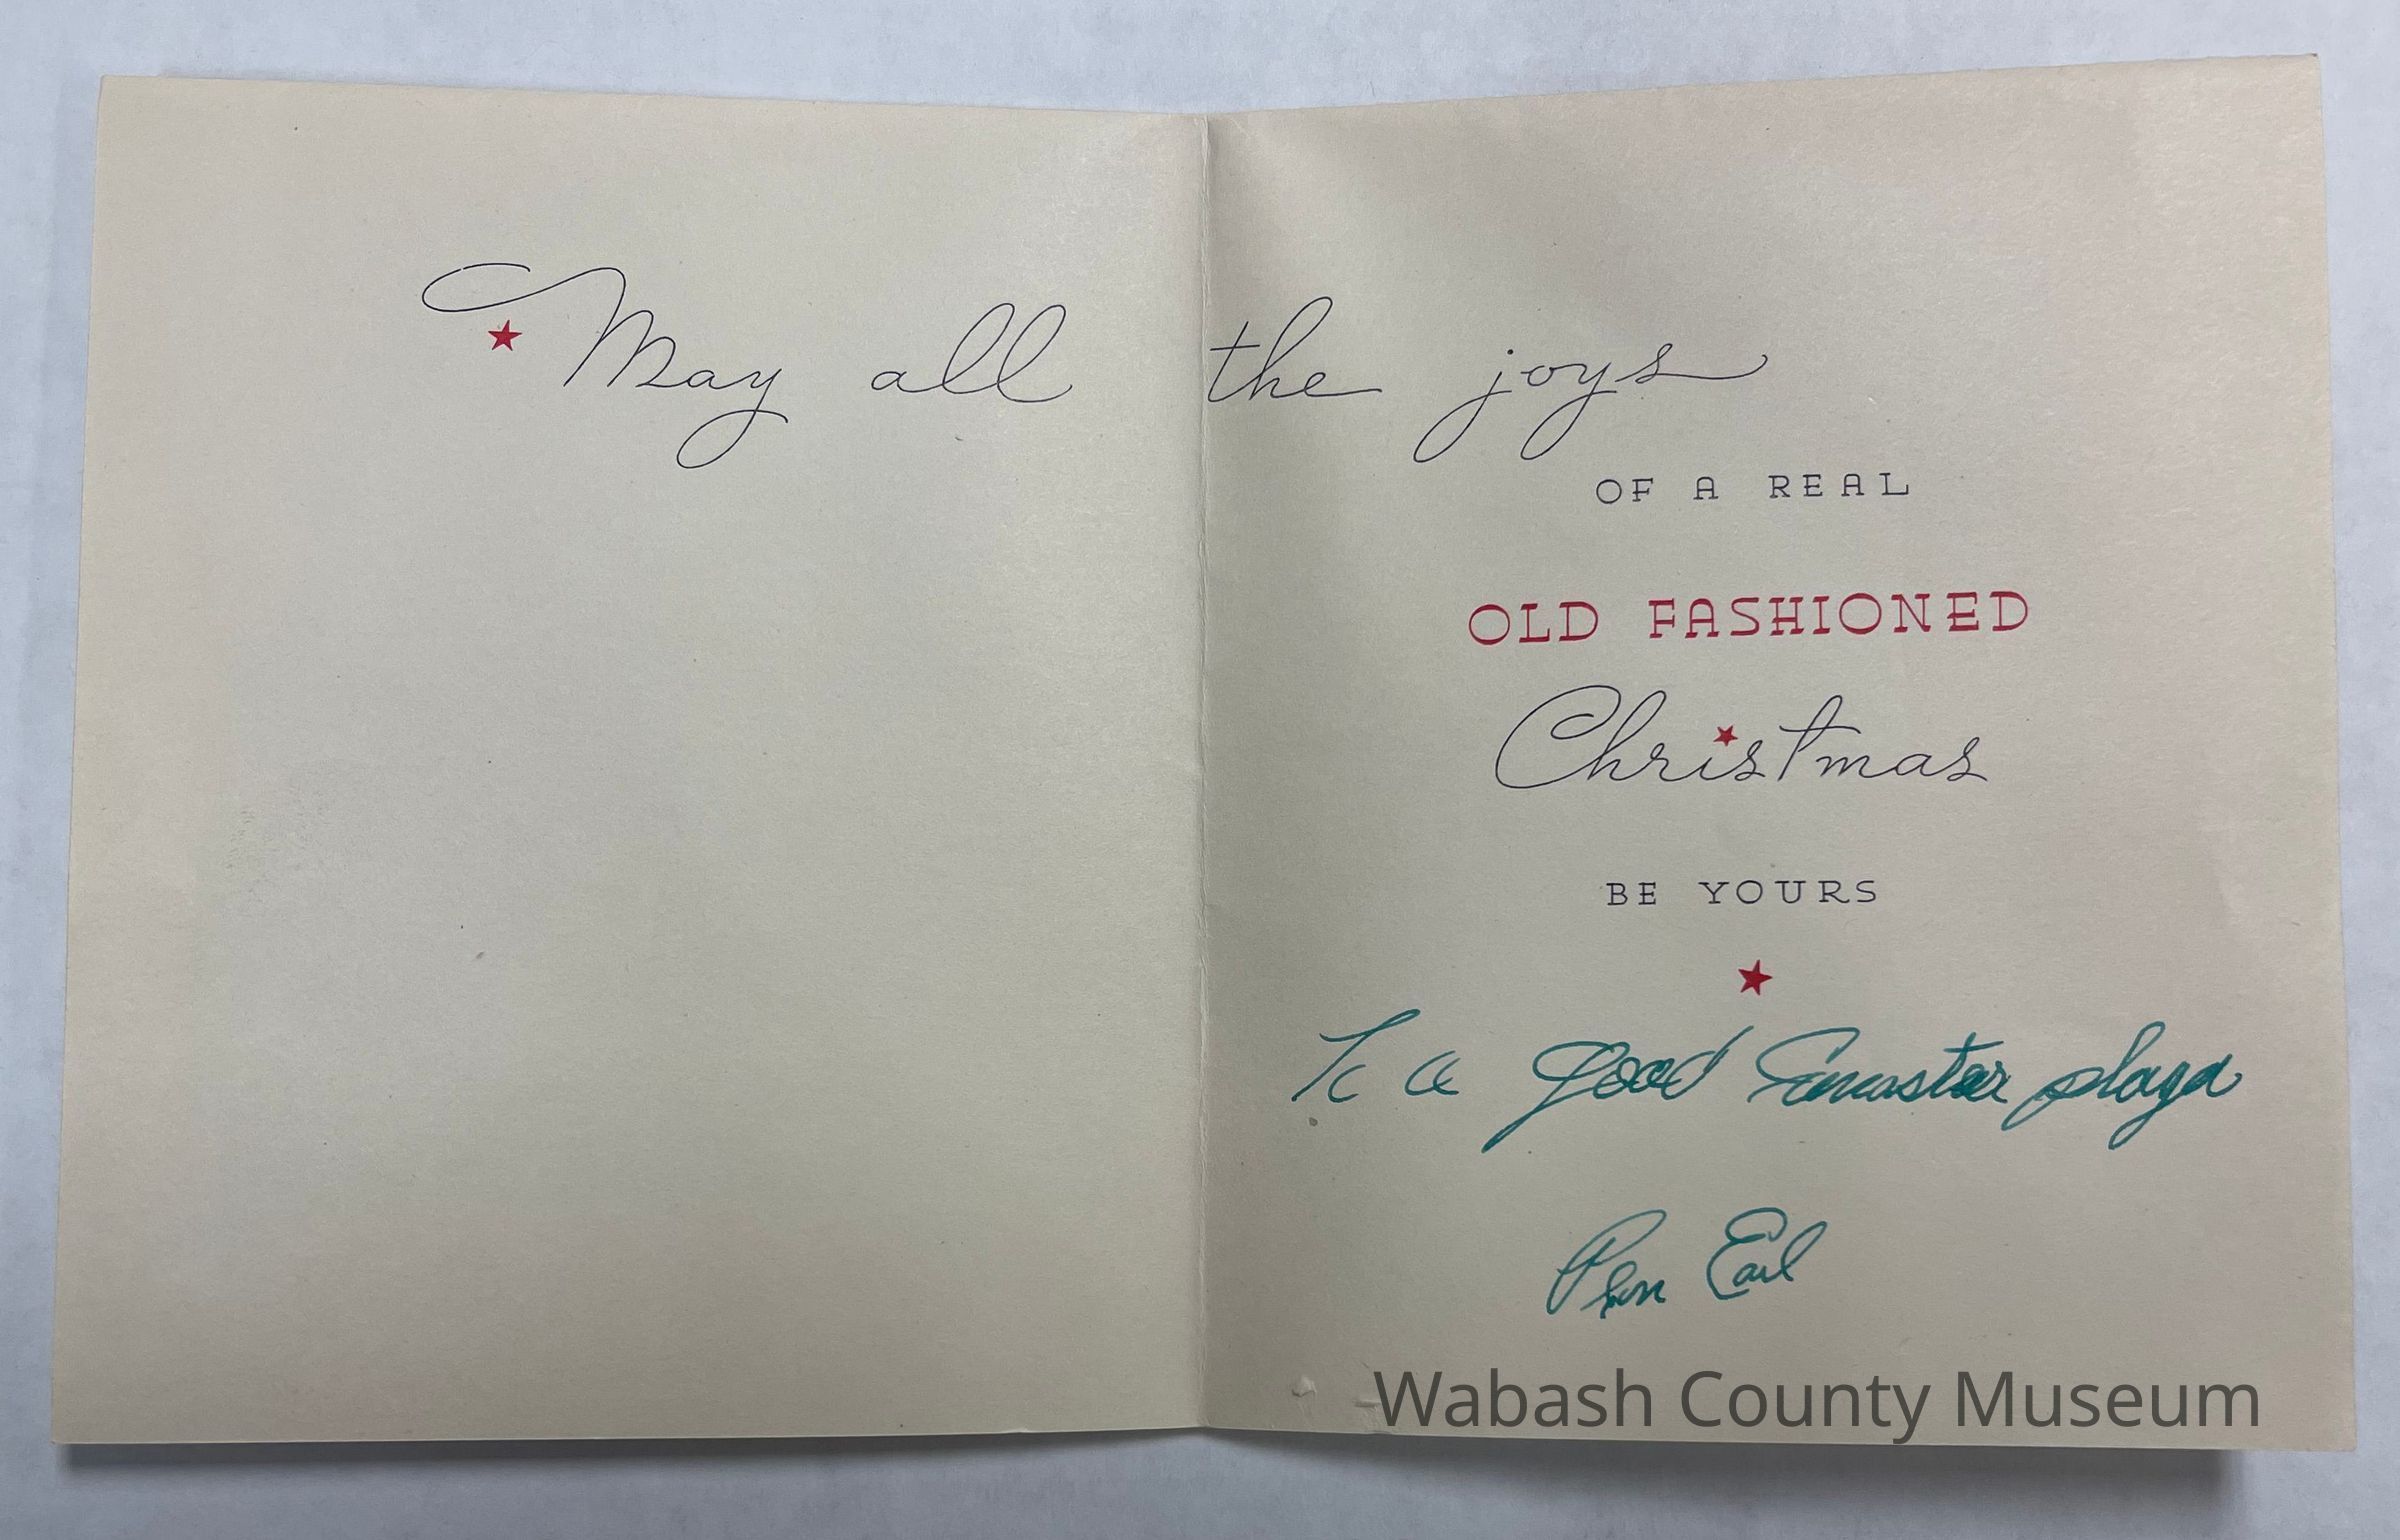 May all the joys
OF A REAL
OLD FASHIONED
Christmas
BE YOURS
To a good player
Earl
Wabash County Museum